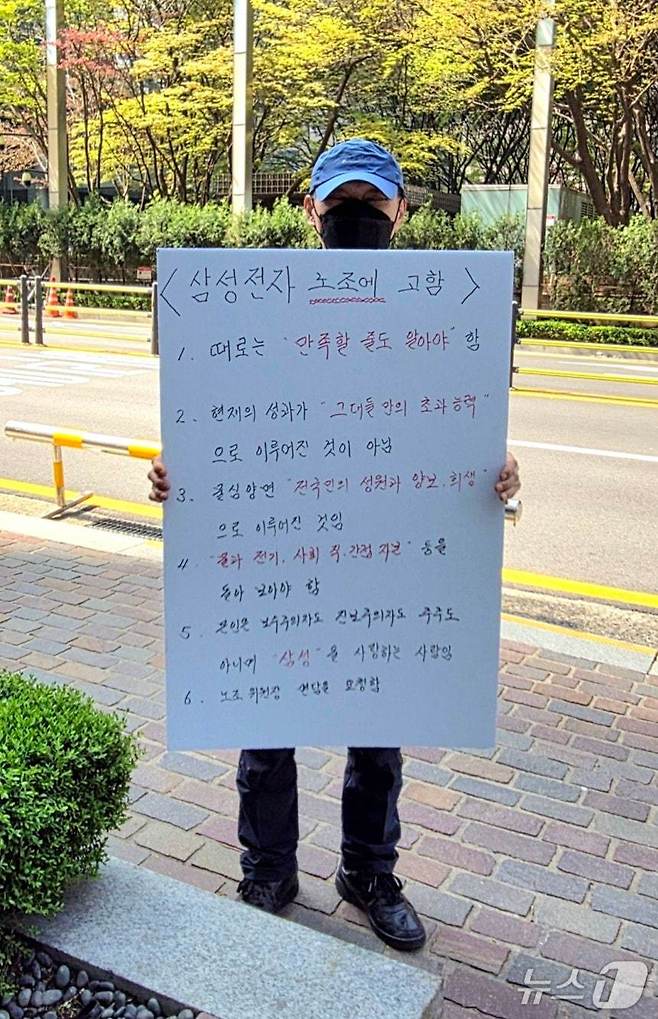 <삼성전자 노조에 고함>
1. 때로는 "만족할 줄도 알아야" 함
2. 현재의 성과가 "그대들만의 초과능력"
으로 이루어진 것이 아님
3. 물심양면 "전국민의 성원과 양보.희생"
으로 이루어진 것임
4. "물과 전기, 사회 직.간접 자본" 등을
돌아 보아야 함
5. 본인은 보수주의자도 진보주의자도 주주도
아니며 "삼성"을 사랑하는 사람임
6. 노조 위원장 면담을 요청함
뉴스1